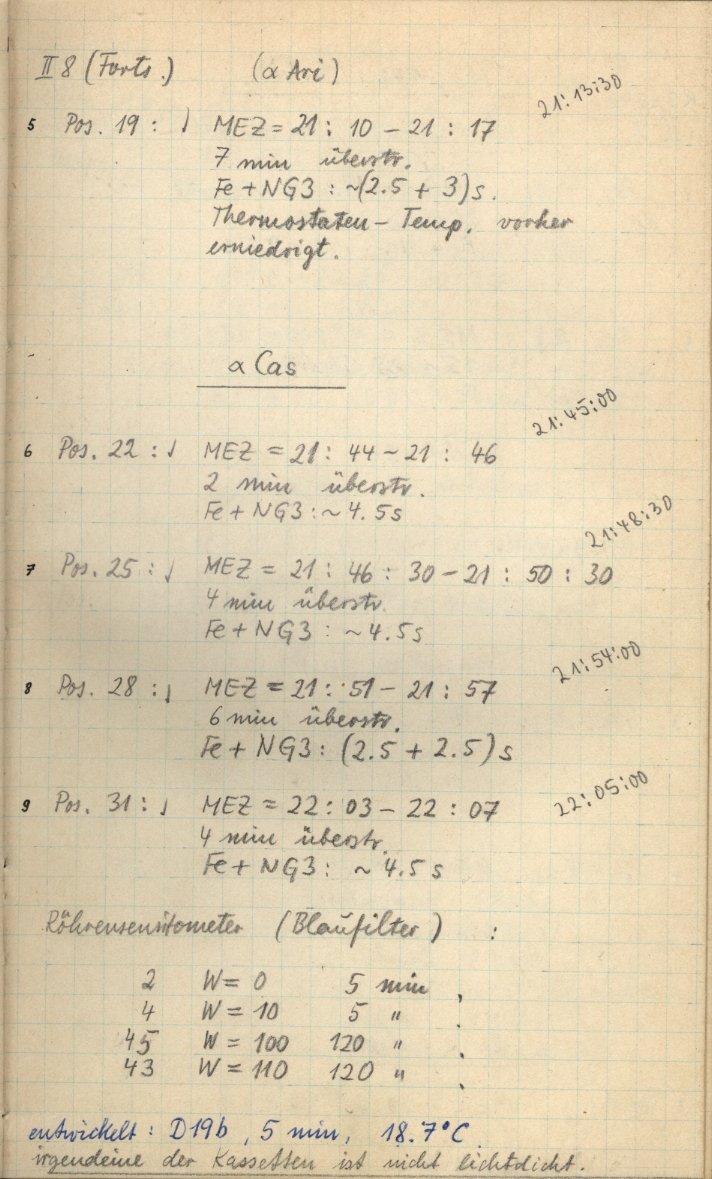 II 8 (Forts.) (α Ari)
21:13:30
5 Pos. 19 : ↓ MEZ = 21 : 10 – 21 : 17
7 min überstr.
Fe + NG3 : ~(2.5 + 3) s.
Thermostaten – Temp. vorher
erniedrigt.
α Cas
21:45:00
6 Pos. 22 : ↓ MEZ = 21 : 44 – 21 : 46
2 min überstr.
Fe + NG3 : ~ 4.5 s
21:48:30
7 Pos. 25 : ↓ MEZ = 21 : 46 : 30 – 21 : 50 : 30
4 min überstr.
Fe + NG3 : ~ 4.5 s
21:54:00
8 Pos. 28 : ↓ MEZ = 21 : 51 – 21 : 57
6 min überstr.
Fe + NG3 : (2.5 + 2.5) s
22:05:00
9 Pos. 31 : ↓ MEZ = 22 : 03 – 22 : 07
4 min überstr.
Fe + NG3 : ~ 4.5 s
Röhrensensitometer (Blaufilter) :
2 W = 0 5 min ,
4 W = 10 5 " ,
45 W = 100 120 " ,
43 W = 110 120 " ,
entwickelt : D19b , 5 min, 18.7°C.
irgendeine der Kassetten ist nicht lichtdicht.